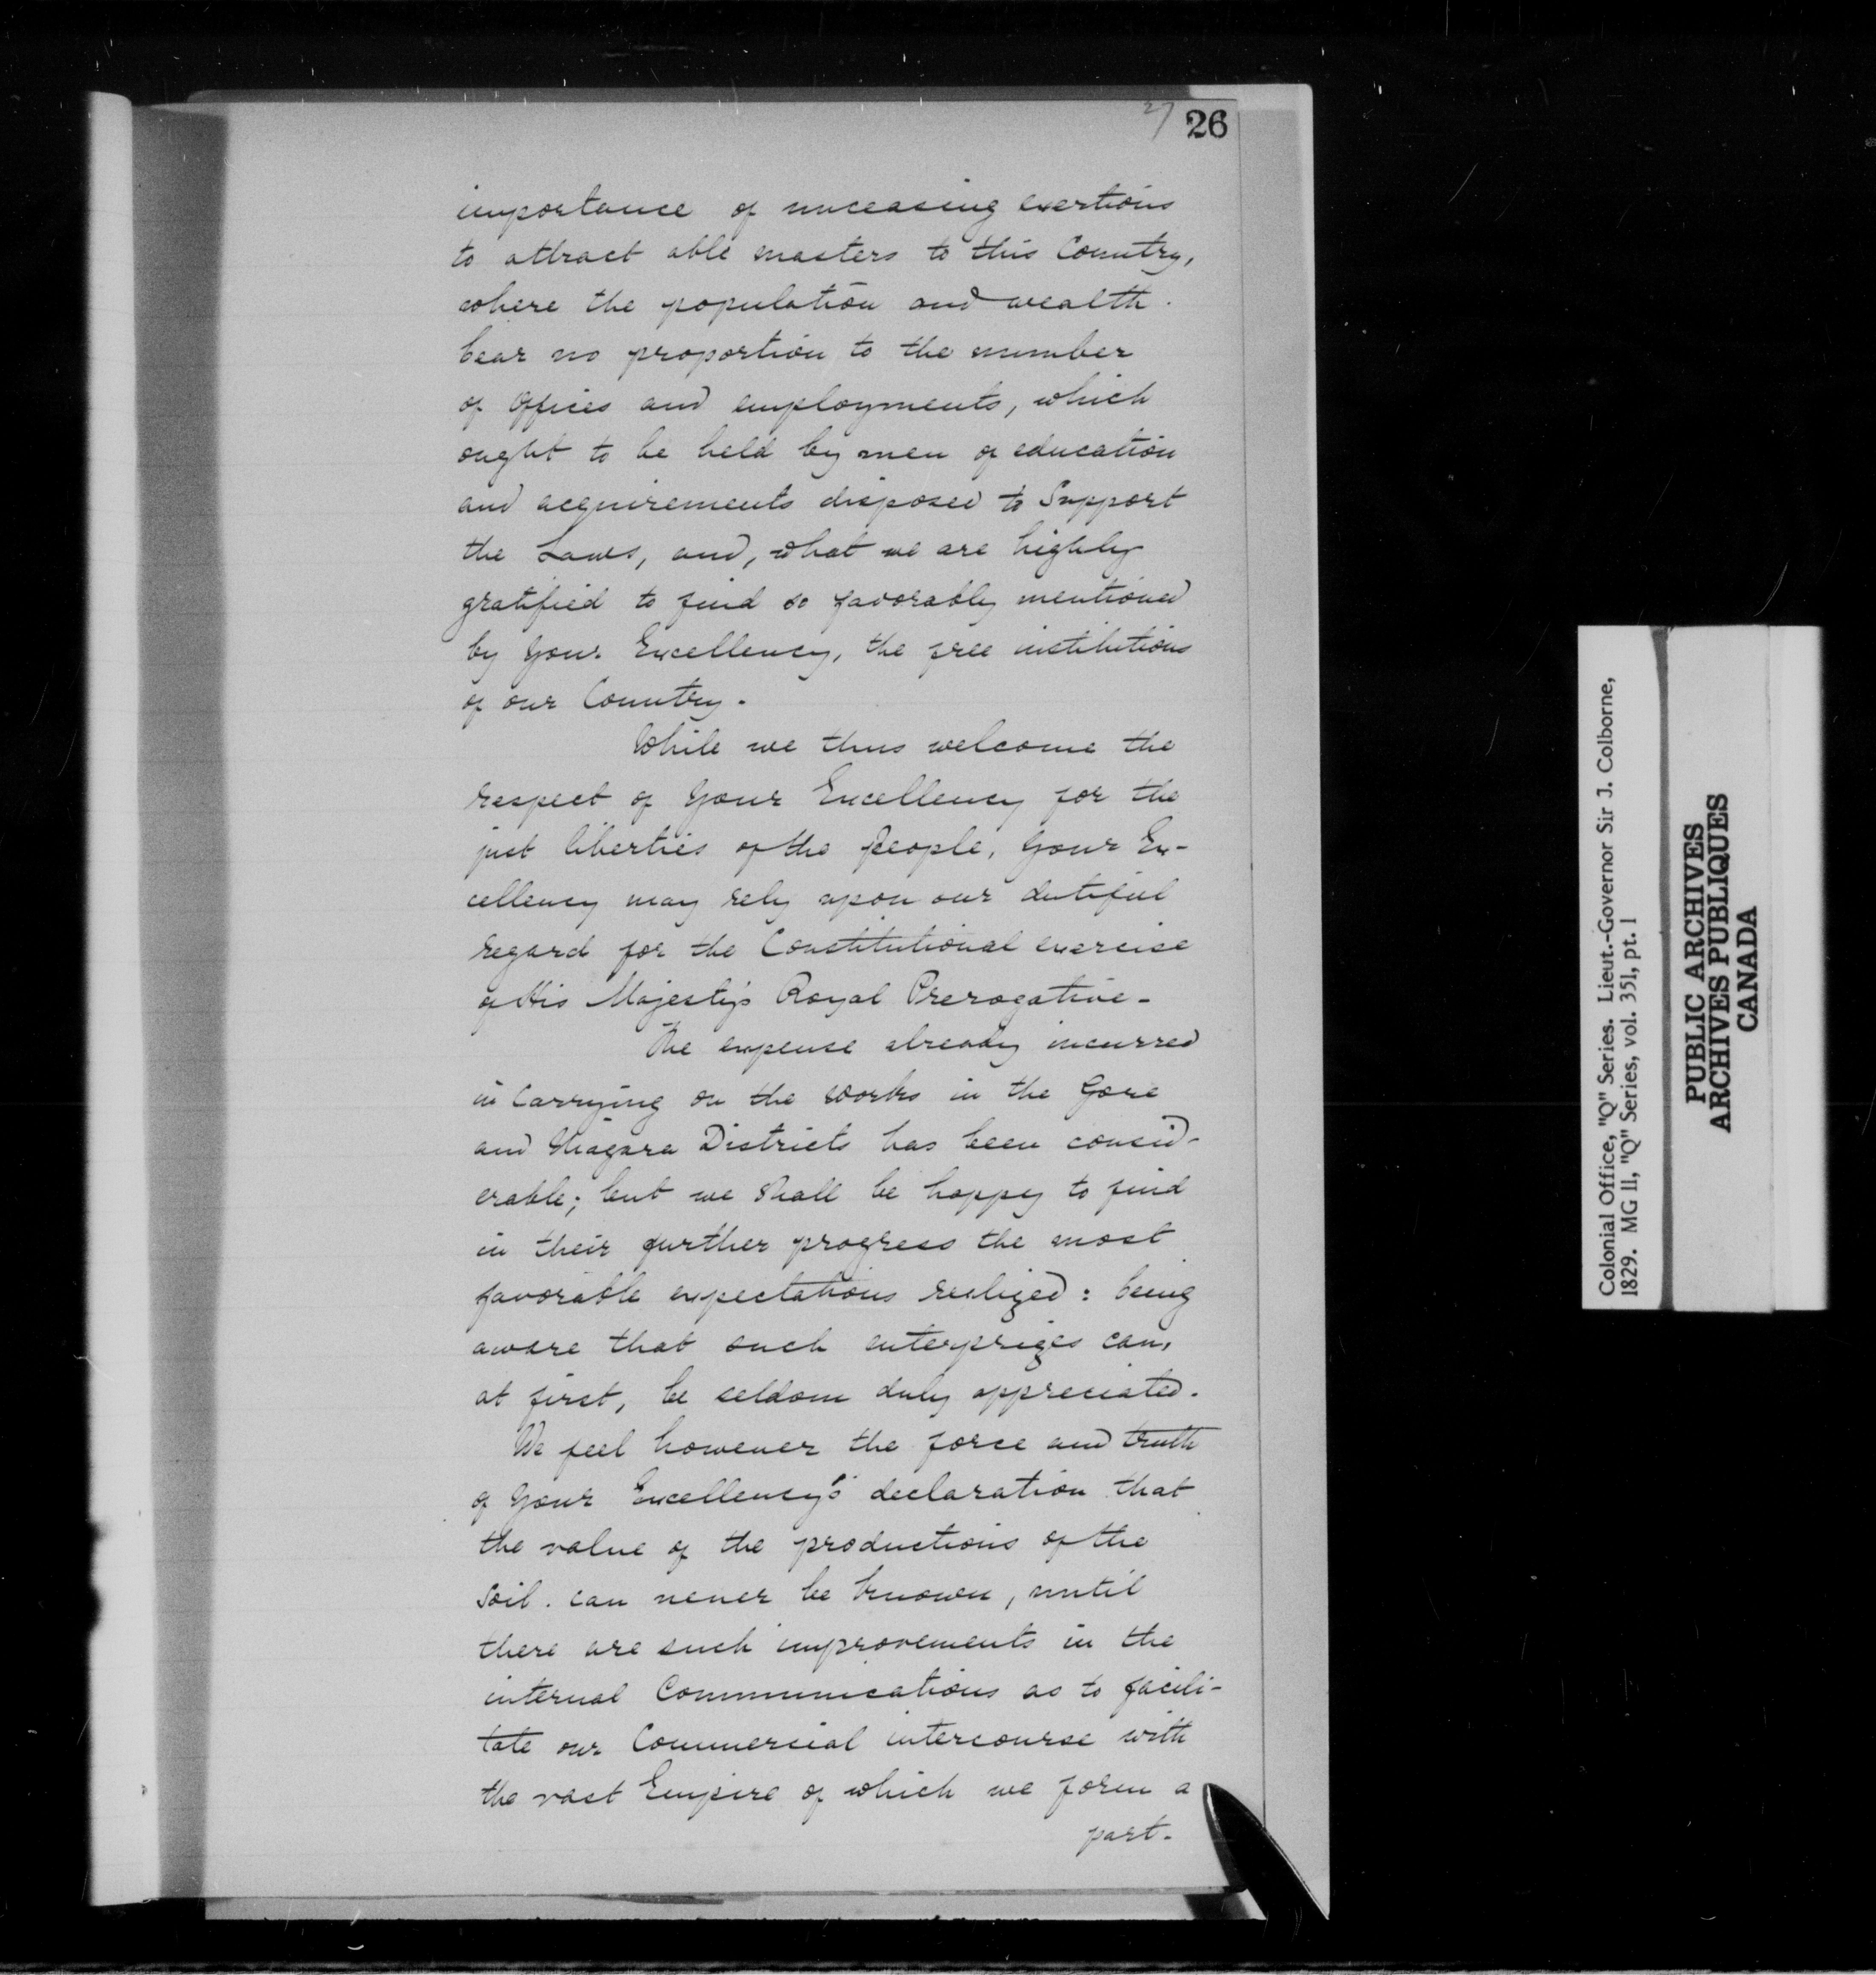 27 26
importance of unceasing exertions
to attract able masters to this Country,
where the population and wealth
bear no proportion to the number
of Offices and employments, which
ought to be held by men of education
and acquirements disposed to Support
the Laws, and, what we are highly
gratified to find so favorably mentioned
by Your Excellency, the free institutions
of our Country.
While we thus welcome the
respect of Your Excellency for the
just liberties of the People, Your Ex-
cellency may rely upon our dutiful
regard for the Constitutional exercise
of His Majesty's Royal Prerogative-
The expense already incurred
in Carrying on the works in the Gore
and Niagara Districts has been consid-
erable; but we Shall be happy to find
in their further progress the most
favorable expectations realized: being
aware that such enterprizes can,
at first, be seldom duly appreciated.
We feel however the force and truth
of Your Excellency's declaration that
the value of the productions of the
Soil. can never be known, until
there are such improvements in the
internal Communications as to facili-
tate our Commercial intercourse with
the vast Empire of which we form a
part.
Colonial Office, "Q" Series. Lieut.-Governor Sir J. Colborne,
1829. MG 11, "Q" Series, vol. 351, pt. 1
PUBLIC ARCHIVES
ARCHIVES PUBLIQUES
CANADA